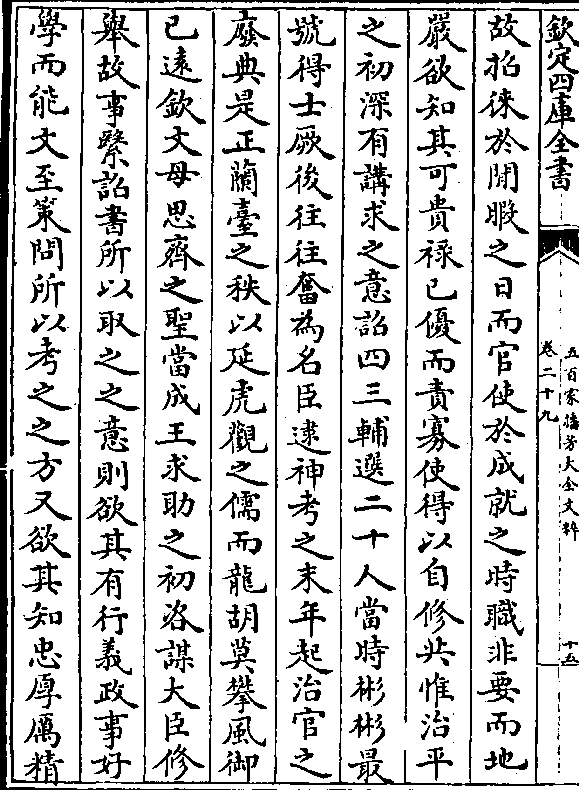 欽定四庫全書
五百家播芳大全文粹
卷二十九
十五
故招徠於閒暇之日而官使於成就之時職非要而地
嚴欲知其可貴祿已優而責寡使得以自修共惟治平
之初深有講求之意詔四三輔選二十人當時彬彬最
號得士厥後往往奮為名臣逮神考之末年起治官之
廢典是正蘭臺之秩以延虎觀之儒而龍胡莫攀風御
已遠欽文母思齊之聖當成王求助之初咨謀大臣修
舉故事繄詔書所以取之之意則欲其有行義政事好
學而能文至策問所以考之之方又欲其知忠厚厲精